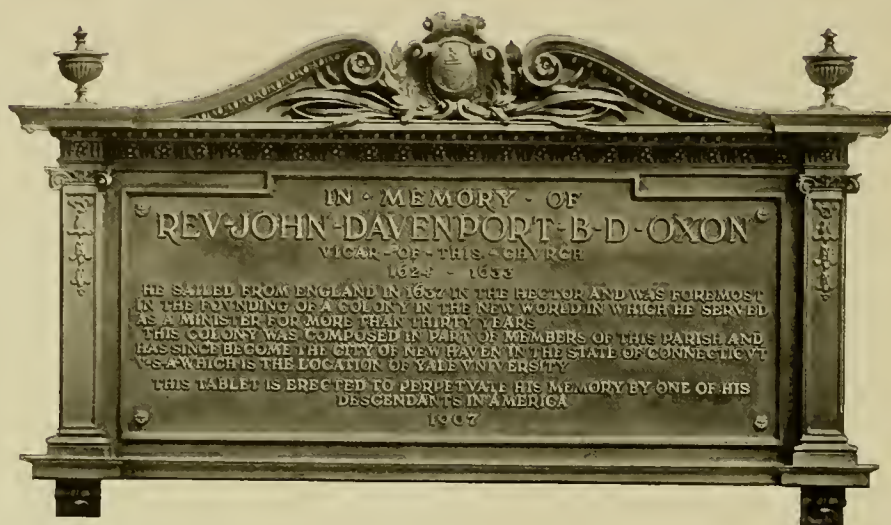 IN · MEMORY · OF
REV · JOHN · DAVENPORT · B · D · OXON
VICAR · OF · THIS · CHVRCH
1624 - 1633
HE SAILED FROM ENGLAND IN 1637 IN THE HECTOR AND WAS FOREMOST
IN THE FOVNDING OF A COLONY IN THE NEW WORLD IN WHICH HE SERVED
AS A MINISTER FOR MORE THAN THIRTY YEARS
THIS COLONY WAS COMPOSED IN PART OF MEMBERS OF THIS PARISH AND
HAS SINCE BECOME THE CITY OF NEW HAVEN IN THE STATE OF CONNECTICVT
V·S·A· WHICH IS THE LOCATION OF YALE VNIVERSITY
THIS TABLET IS ERECTED TO PERPETVATE HIS MEMORY BY ONE OF HIS
DESCENDANTS IN AMERICA
1907